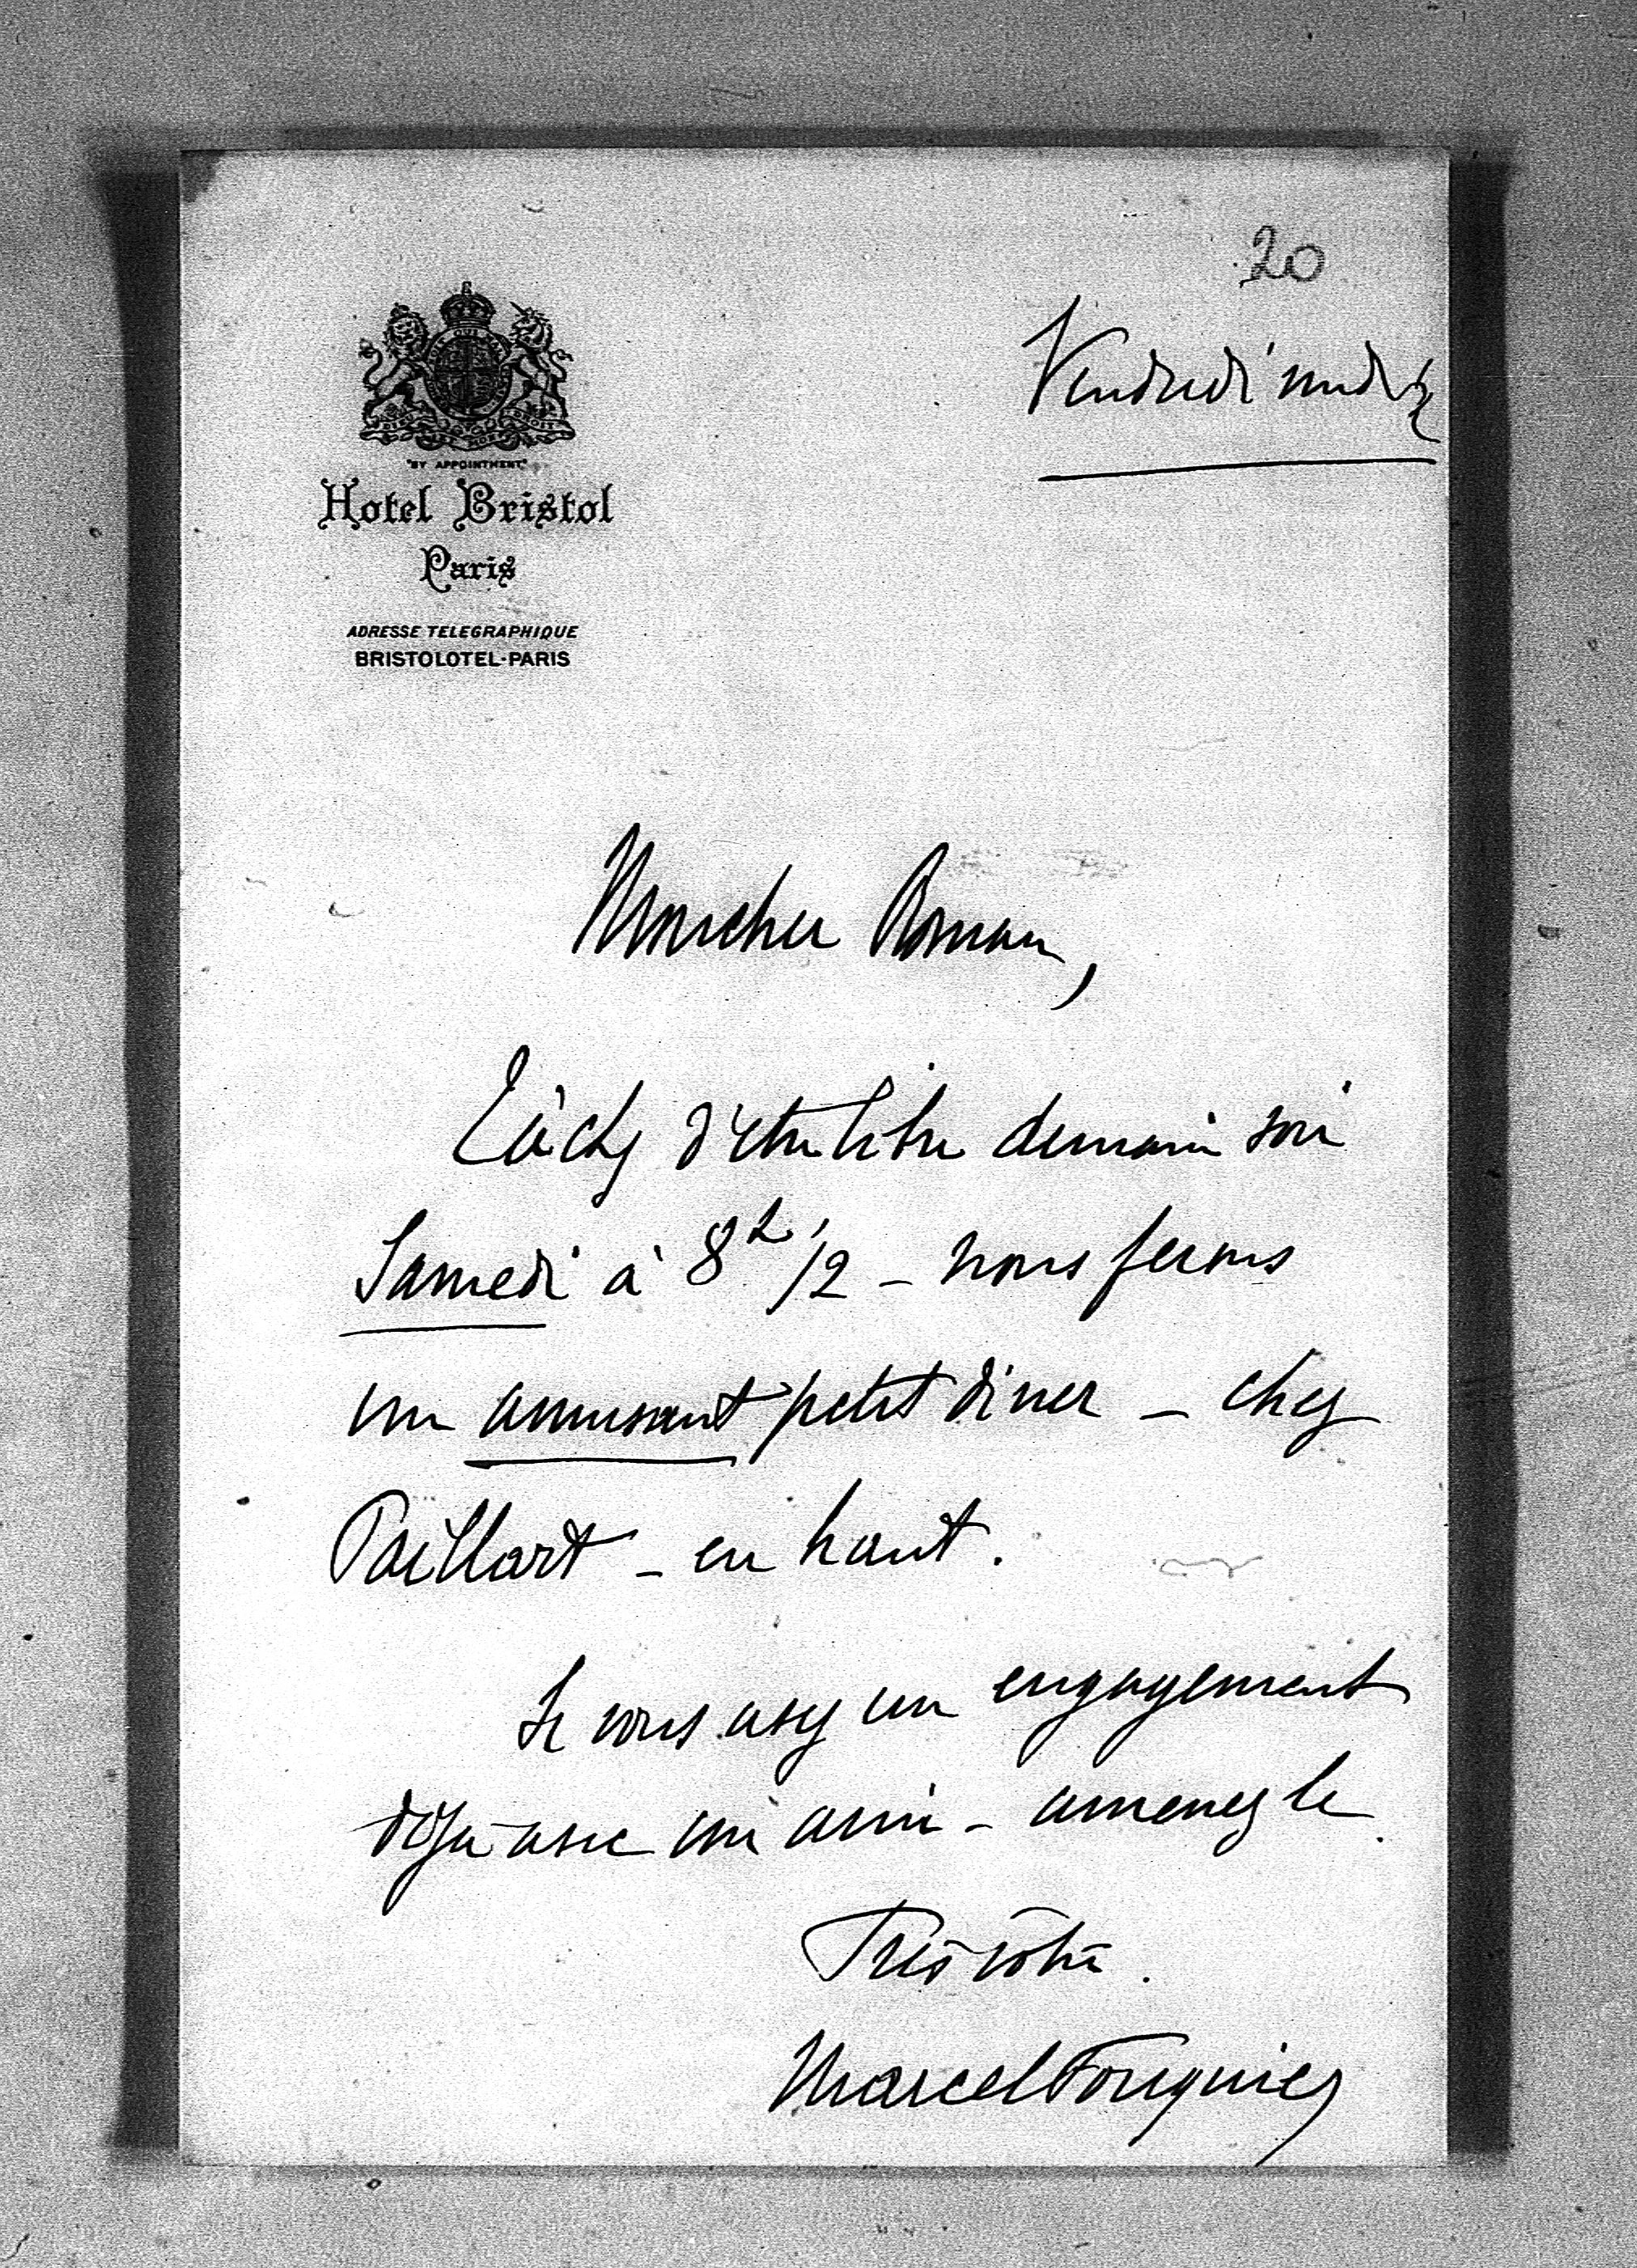 20
Vendredi midi ½
"BY APPOINTMENT"
Hotel Bristol
Paris
ADRESSE TELEGRAPHIQUE
BRISTOLOTEL-PARIS
Mon cher Roman,
Tâchez d'être libre demain soir
Samedi à 8h 1/2 - nous ferons
un amusant petit diner - chez
Paillart - en haut.
Si vous avez un engagement
déjà avec un ami - amenez le
Très vôtre.
Marcel Fouquier